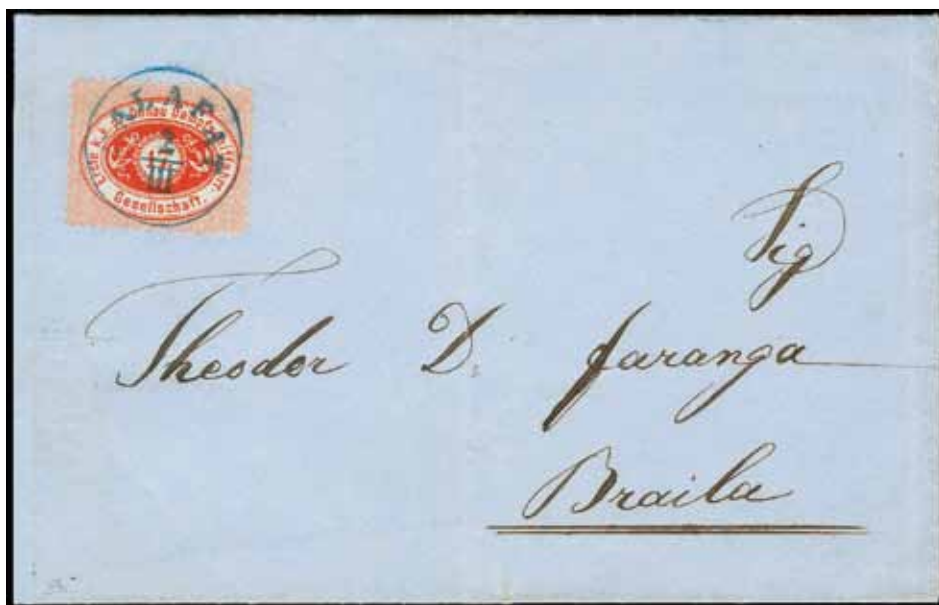 Erste k. k. pr. Donau Dampfschiffahrt
Gesellschaft.
2
VII
Sig
Theodor D. Faranga
Braila